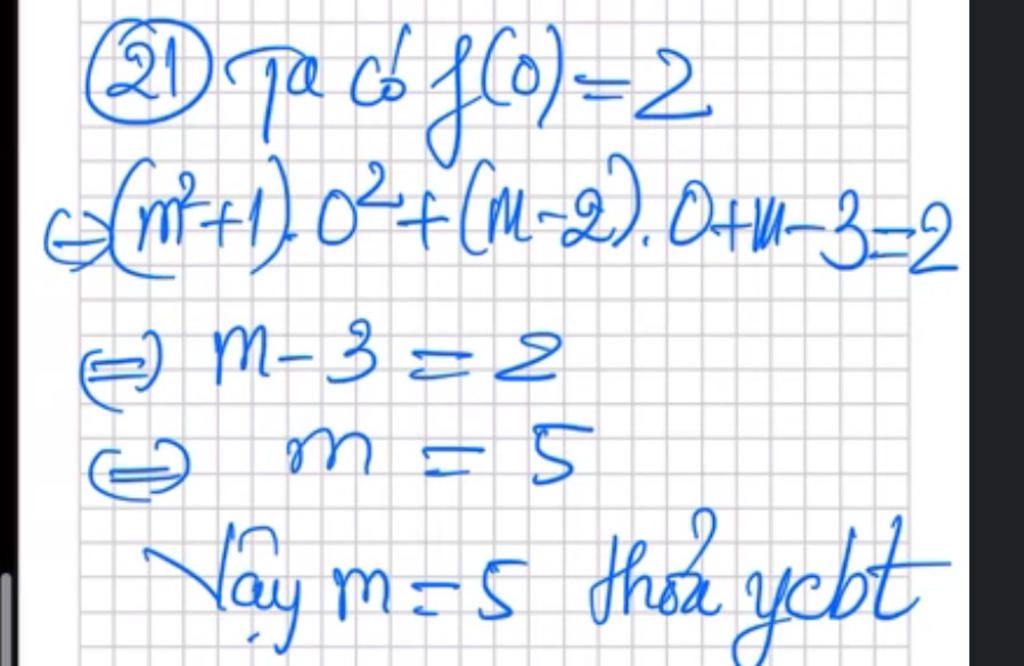 21 Ta có f(0) = 2
⇔ (m²+1).0² + (m-2).0+m-3=2
⇔ m - 3 = 2
⇔ m = 5
Vậy m = 5 thỏa ycbt